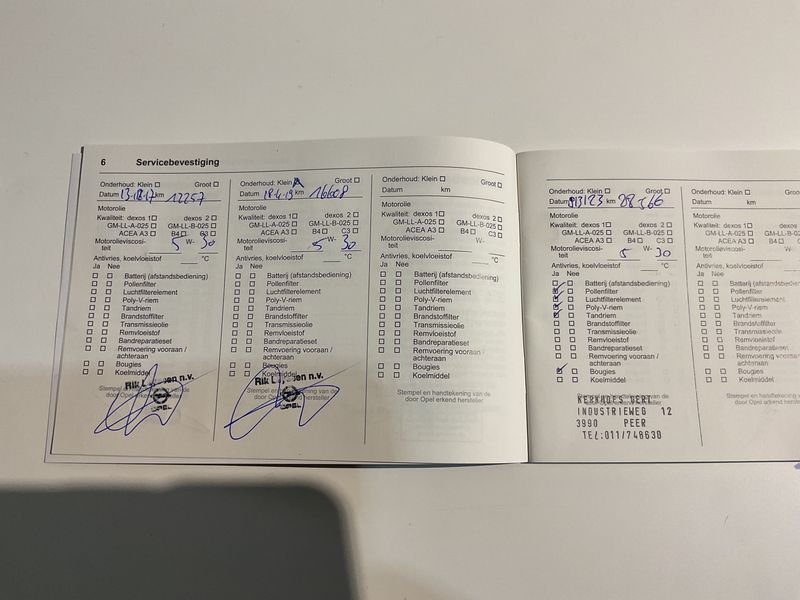 6 Servicebevestiging
Onderhoud: Klein Groot
Datum 13-12-17 km 12257
Motorolie
Kwaliteit: dexos 1 dexos 2
GM-LL-A-025 GM-LL-B-025
ACEA A3 B4 C3
Motorolieviscosi-
teit 5 W- 30
Antivries, koelvloeistof °C
Ja Nee
Batterij (afstandsbediening)
Pollenfilter
Luchtfilterelement
Poly-V-riem
Tandriem
Brandstoffilter
Transmissieolie
Remvloeistof
Bandreparatieset
Remvoering vooraan /
achteraan
Bougies
Koelmiddel
Stempel en handtekening van de
door Opel erkende hersteller
Rik n.v.
OPEL
Onderhoud: Klein Groot
Datum 18-4-19 km 16608
Motorolie
Kwaliteit: dexos 1 dexos 2
GM-LL-A-025 GM-LL-B-025
ACEA A3 B4 C3
Motorolieviscosi-
teit 5 W- 30
Antivries, koelvloeistof °C
Ja Nee
Batterij (afstandsbediening)
Pollenfilter
Luchtfilterelement
Poly-V-riem
Tandriem
Brandstoffilter
Transmissieolie
Remvloeistof
Bandreparatieset
Remvoering vooraan /
achteraan
Bougies
Koelmiddel
Stempel en handtekening van de
door Opel erkend hersteller
Rik n.v.
OPEL
Onderhoud: Klein Groot
Datum km
Motorolie
Kwaliteit: dexos 1 dexos 2
GM-LL-A-025 GM-LL-B-025
ACEA A3 B4 C3
Motorolieviscosi-
teit W-
Antivries, koelvloeistof °C
Ja Nee
Batterij (afstandsbediening)
Pollenfilter
Luchtfilterelement
Poly-V-riem
Tandriem
Brandstoffilter
Transmissieolie
Remvloeistof
Bandreparatieset
Remvoering vooraan /
achteraan
Bougies
Koelmiddel
Stempel en handtekening van de
door Opel erkend hersteller
Onderhoud: Klein Groot
Datum km
Motorolie
Kwaliteit: dexos 1 dexos 2
GM-LL-A-025 GM-LL-B-025
ACEA A3 B4 C3
Motorolieviscosi-
teit 5 W- 30
Antivries, koelvloeistof °C
Ja Nee
Batterij (afstandsbediening)
Pollenfilter
Luchtfilterelement
Poly-V-riem
Tandriem
Brandstoffilter
Transmissieolie
Remvloeistof
Bandreparatieset
Remvoering vooraan /
achteraan
Bougies
Koelmiddel
GERT
INDUSTRIEWEG 12
3990 PEER
TEL:011/740630
Onderhoud: Klein
Datum km
Motorolie
Kwaliteit: dexos 1
GM-LL-A-025 GM-LL-B
ACEA A3 B4
Motorolieviscosi-
teit W-
Antivries, koelvloeistof
Ja Nee
Batterij (afstandsbed
Pollenfilter
Luchtfilterelement
Poly-V-riem
Tandriem
Brandstoffilter
Transmissieolie
Remvloeistof
Bandreparatieset
Remvoering vooraan
achteraan
Bougies
Koelmiddel
Stempel en handtekening
door Opel erkend hersteller